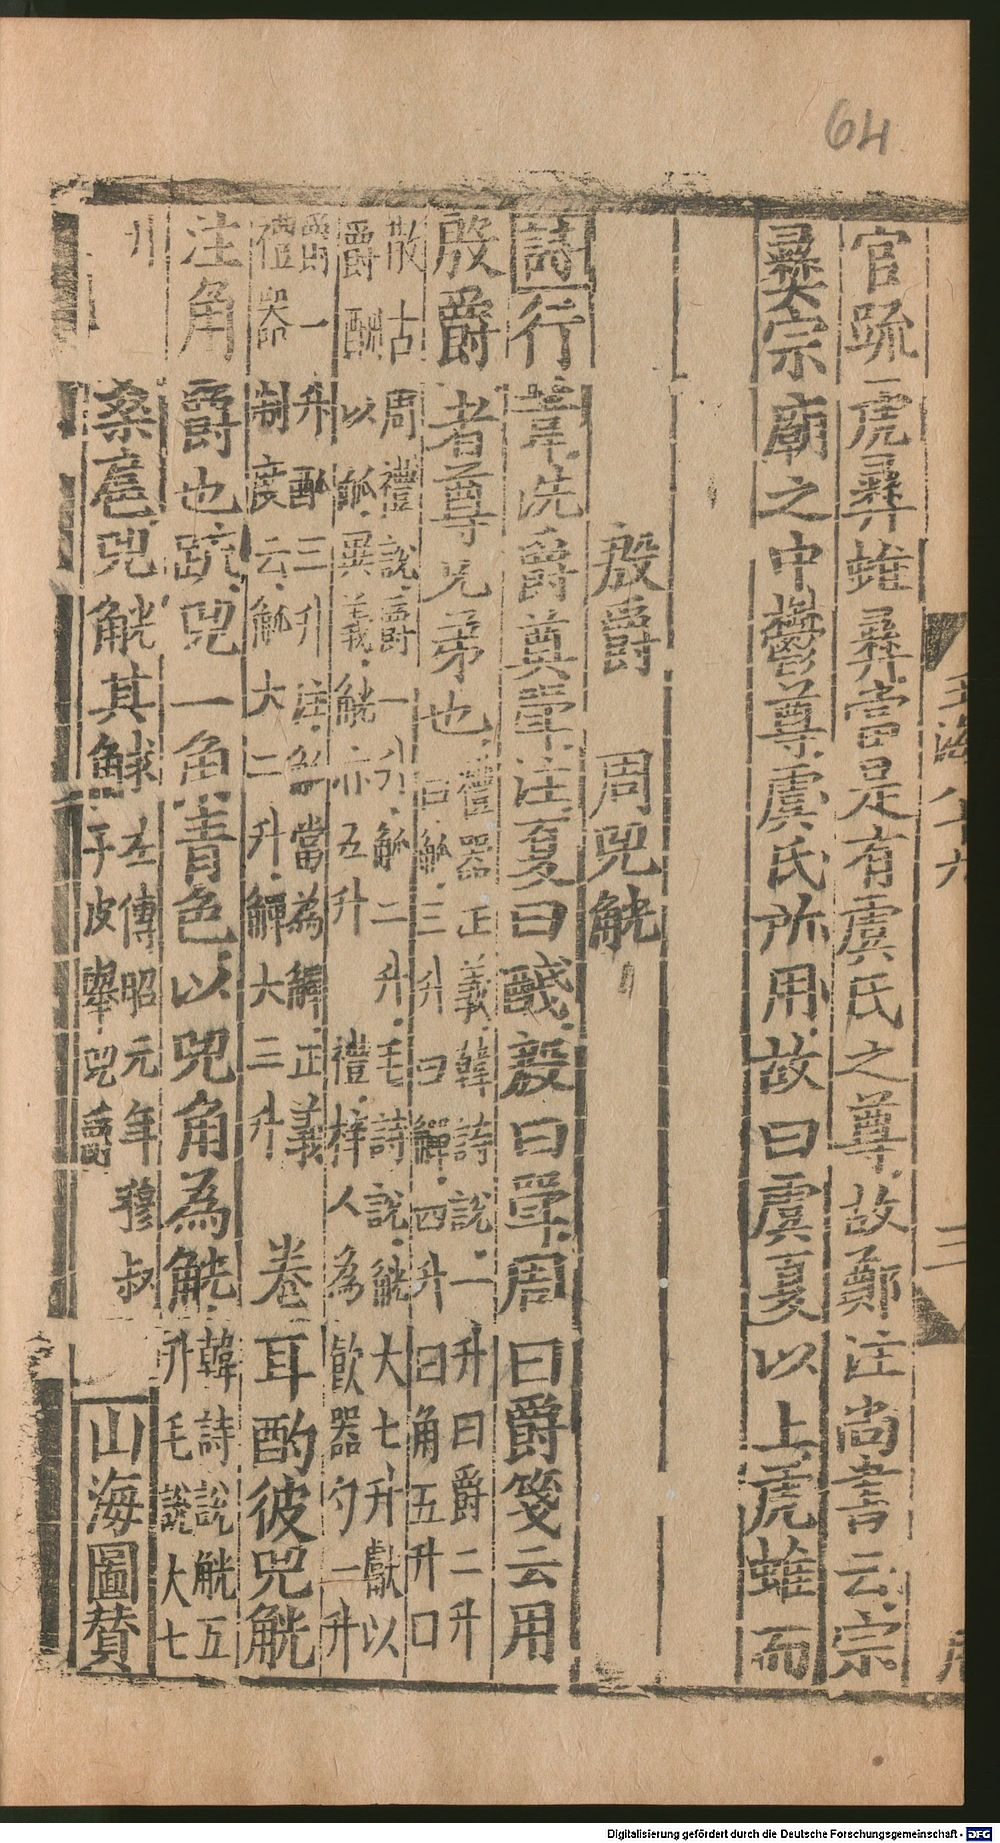 64
官䟽虎彛蜼彛當是有虞氏之尊故鄭注尚書云宗
彛宗廟之中鬱尊虞氏所用故曰虞夏以上虎蜼而
殷爵　周兕觥
詩行葦洗爵奠斝注夏曰醆殷曰斝周曰爵箋云用
殷爵者尊兄弟也
禮器正義韓詩說一升曰爵二升
曰觚三升曰觶四升曰角五升曰
散古周禮說爵一升觚二升毛詩說觥大七升獻以
爵酬以觚異義觥亦五升　禮梓人為飲器勺一升
爵一升觚三升注觚當為觶正義
禮器制度云觚大二升觶大三升
卷耳酌彼兕觥
注角爵也䟽兕一角青色以兕角為觥
韓詩說觥五
升毛說大七
升
桑扈兕觥其觩
左傳昭元年穆叔
子皮舉兕爵
山海圖贊
玉海八十六
三
Digitalisierung gefördert durch die Deutsche Forschungsgemeinschaft - DFG